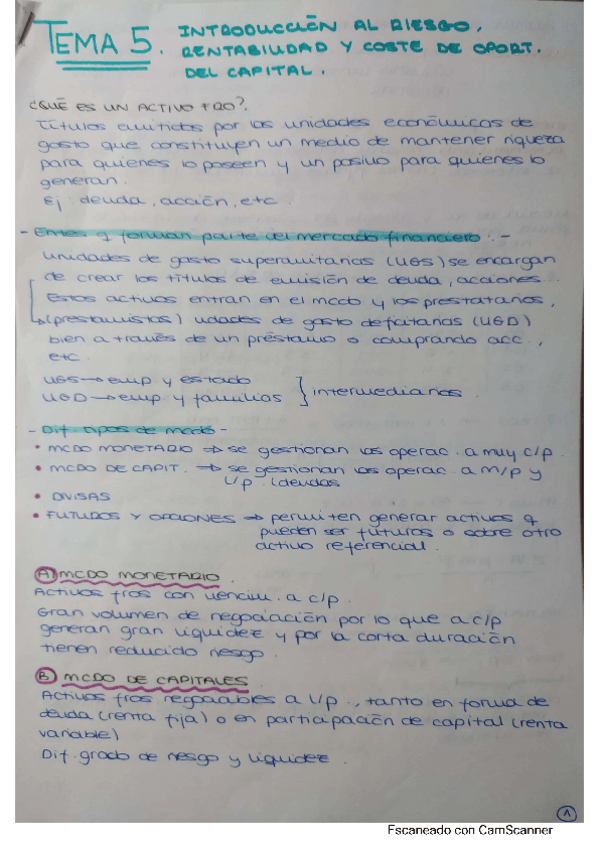 TEMA 5. INTRODUCCIÓN AL RIESGO,
RENTABILIDAD Y COSTE DE OPORT.
DEL CAPITAL.
¿QUÉ ES UN ACTIVO FRO?.
Títulos emitidos por las unidades económicas de
gasto que constituyen un medio de mantener riqueza
para quienes lo poseen y un pasivo para quienes lo
generan.
Ej: deuda, acción, etc
- Entes q forman parte del mercado financiero. -
unidades de gasto superavitarias (UGS) se encargan
de crear los títulos de emisión de deuda, acciones.
Estos activos entran en el mcdo y los prestatarios,
(prestamistas) udades de gasto deficitarias (UGD)
bien a través de un préstamo o comprando acc.,
etc.
UGS → emp y estado
UGD → emp y familias } intermediarios.
- Dif. tipos de mcdo -
• MCDO MONETARIO → se gestionan las operac. a muy c/p.
• MCDO DE CAPIT. → se gestionan las operac. a m/p y
l/p (deudas
• DIVISAS
• FUTUROS Y OPCIONES → permiten generar activos q
pueden ser futuros o sobre otro
activo referencial.
A) MCDO MONETARIO.
Activos fros con vencim. a c/p.
Gran volumen de negociación por lo que a c/p
generan gran liquidez y por la corta duración
tienen reducido riesgo.
B) MCDO DE CAPITALES
Activos fros negociables a l/p, tanto en forma de
deuda (renta fija) o en participación de capital (renta
variable)
Dif. grado de riesgo y liquidez.
1
Escaneado con CamScanner